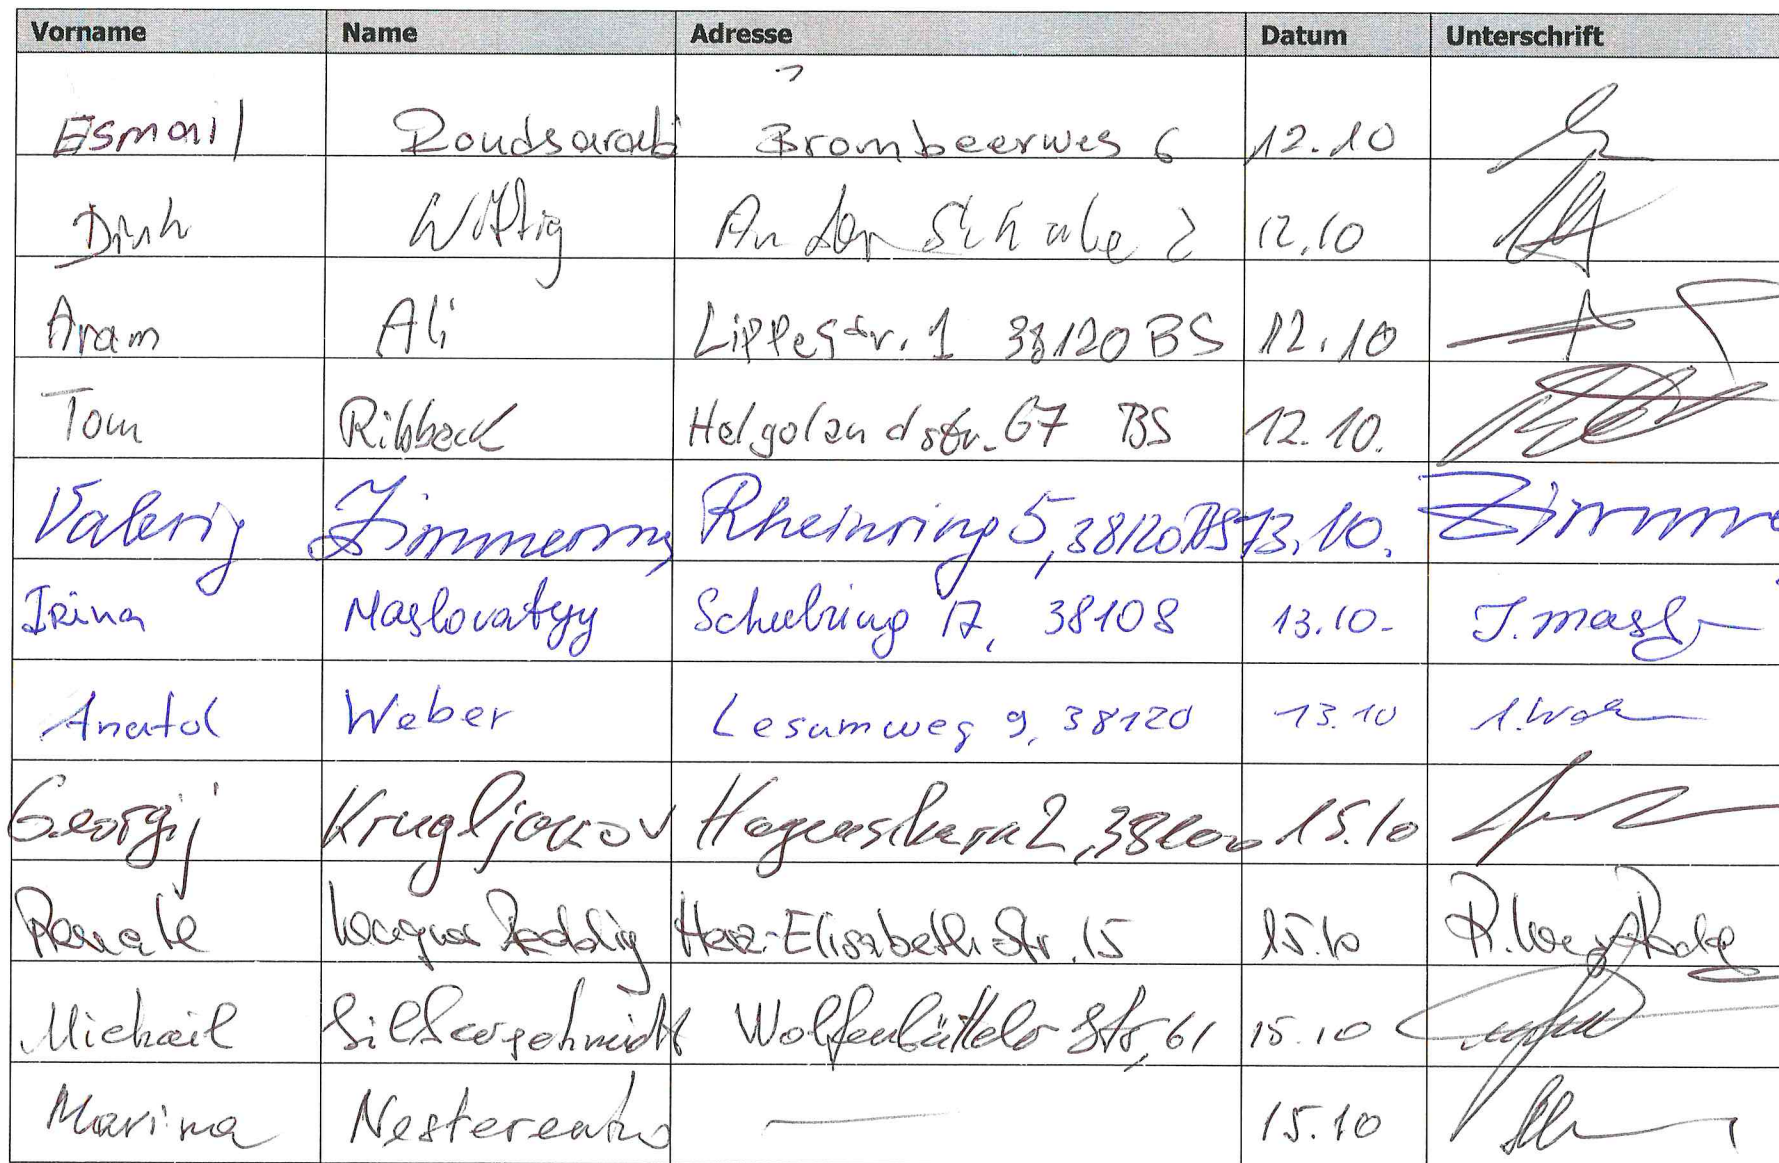 Vorname Name Adresse Datum Unterschrift
Esmail Roudsarabi Brombeerweg 6 12.10
Wittig An der Schule 2 12.10
Aram Ali Lippestr. 1 38120 BS 12.10
Tom Ribbeck Helgolandstr. 67 BS 12.10.
Valerij Zimmermann Rheinring 5, 38120 BS 13.10. Zimme
Irina Maslovatyy 17, 38108 13.10. I. Masl
Anatol Weber Lesumweg 9, 38120 13.10
Georgij Krugljakov 2, 38100 15.10
Renate Elisabeth Str. 15 15.10
Michail Silberschmidt Wolfenbüttler Str, 61 15.10
Marina Nesterenko — 15.10